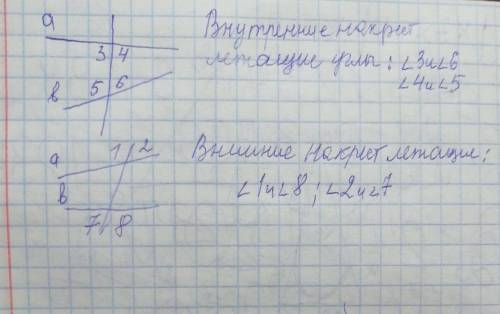 a
3 4
в
5 6
Внутренние накрест
лежащие углы: ∠3 и ∠6
∠4 и ∠5
a
1 2
в
7 8
Внешние накрест лежащие:
∠1 и ∠8; ∠2 и ∠7